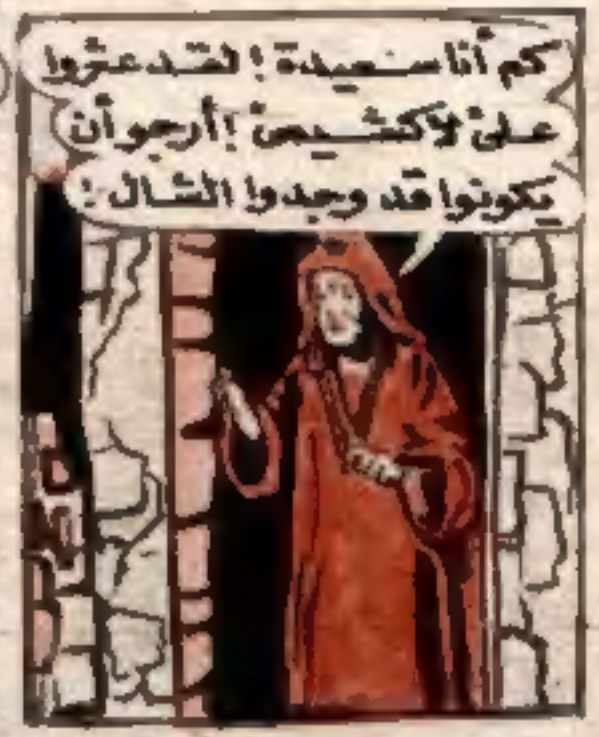 كم أنا سعيدة! لقد عثروا
على لاكشيمى! أرجو أن
يكونوا قد وجدوا الشال!